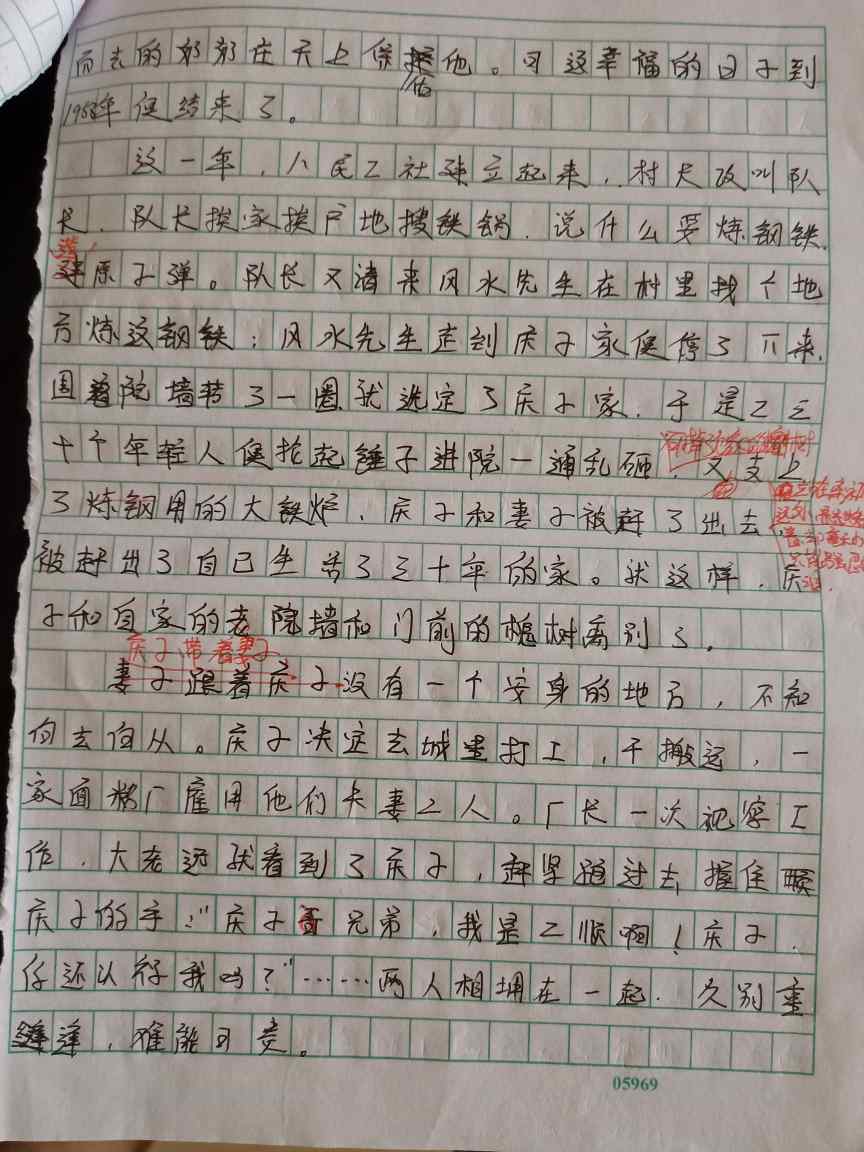 而去的奶奶在天上保佑他。可这幸福的日子到
1958年便结束了。
这一年，人民公社建立起来，村长改叫队
长，队长挨家挨户地搜铁锅，说什么要炼钢铁，
造原子弹。队长又请来风水先生在村里找个地
方炼这钢铁；风水先生走到庆子家便停了下来，
围着院墙转了一圈，就选定了庆子家，于是二三
十个年轻人便抡起锤子进院一通乱砸，又支上
了炼钢用的大铁炉，庆子和妻子被赶了出去，
被赶出了自己生活了三十年的家。就这样，庆
子和自家的老院墙和门前的槐树离别了。
庆子带着妻子
妻子跟着庆子没有一个安身的地方，不知
何去何从。庆子决定去城里打工，干搬运，一
家面粉厂雇用他们夫妻二人。厂长一次视察工
作，大老远就看到了庆子，赶紧跑过去，握住
庆子的手："庆子哥兄弟，我是二顺啊！庆子，
你还认得我吗？"……两人相拥在一起，久别重
逢，难能可贵。
05969